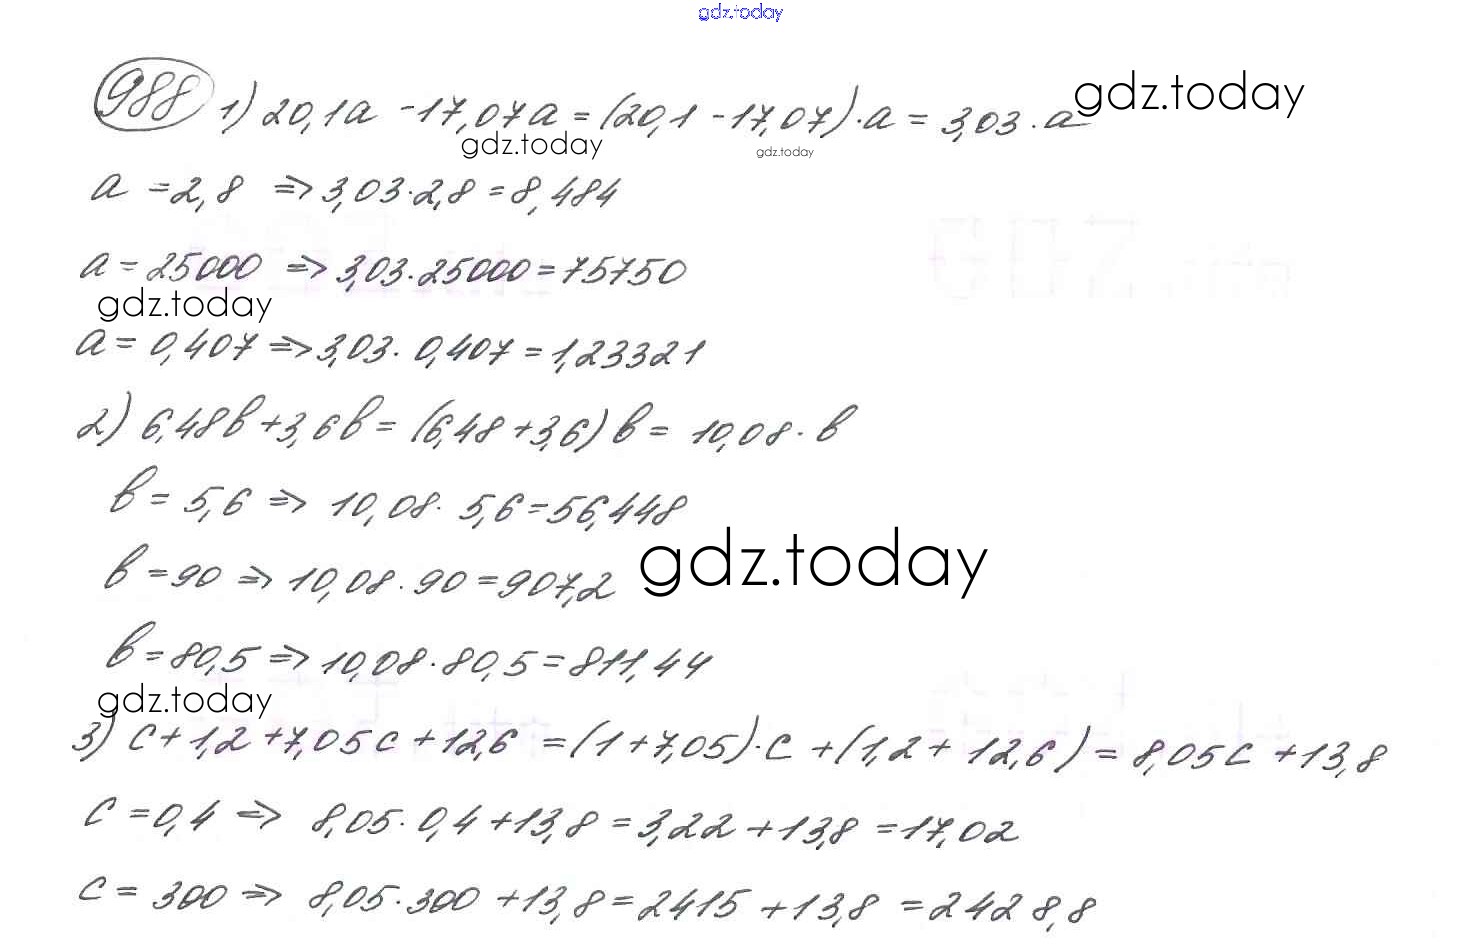 gdz.today
988 1) 20,1a - 17,07a = (20,1 - 17,07)·a = 3,03·a
gdz.today
gdz.today
gdz.today
a = 2,8 => 3,03·2,8 = 8,484
a = 25000 => 3,03·25000 = 75750
gdz.today
a = 0,407 => 3,03·0,407 = 1,23321
2) 6,48в + 3,6в = (6,48 + 3,6)в = 10,08·в
в = 5,6 => 10,08·5,6 = 56,448
gdz.today
в = 90 => 10,08·90 = 907,2
в = 80,5 => 10,08·80,5 = 811,44
gdz.today
3) c + 1,2 + 7,05c + 12,6 = (1 + 7,05)·c + (1,2 + 12,6) = 8,05c + 13,8
c = 0,4 => 8,05·0,4 + 13,8 = 3,22 + 13,8 = 17,02
c = 300 => 8,05·300 + 13,8 = 2415 + 13,8 = 2428,8